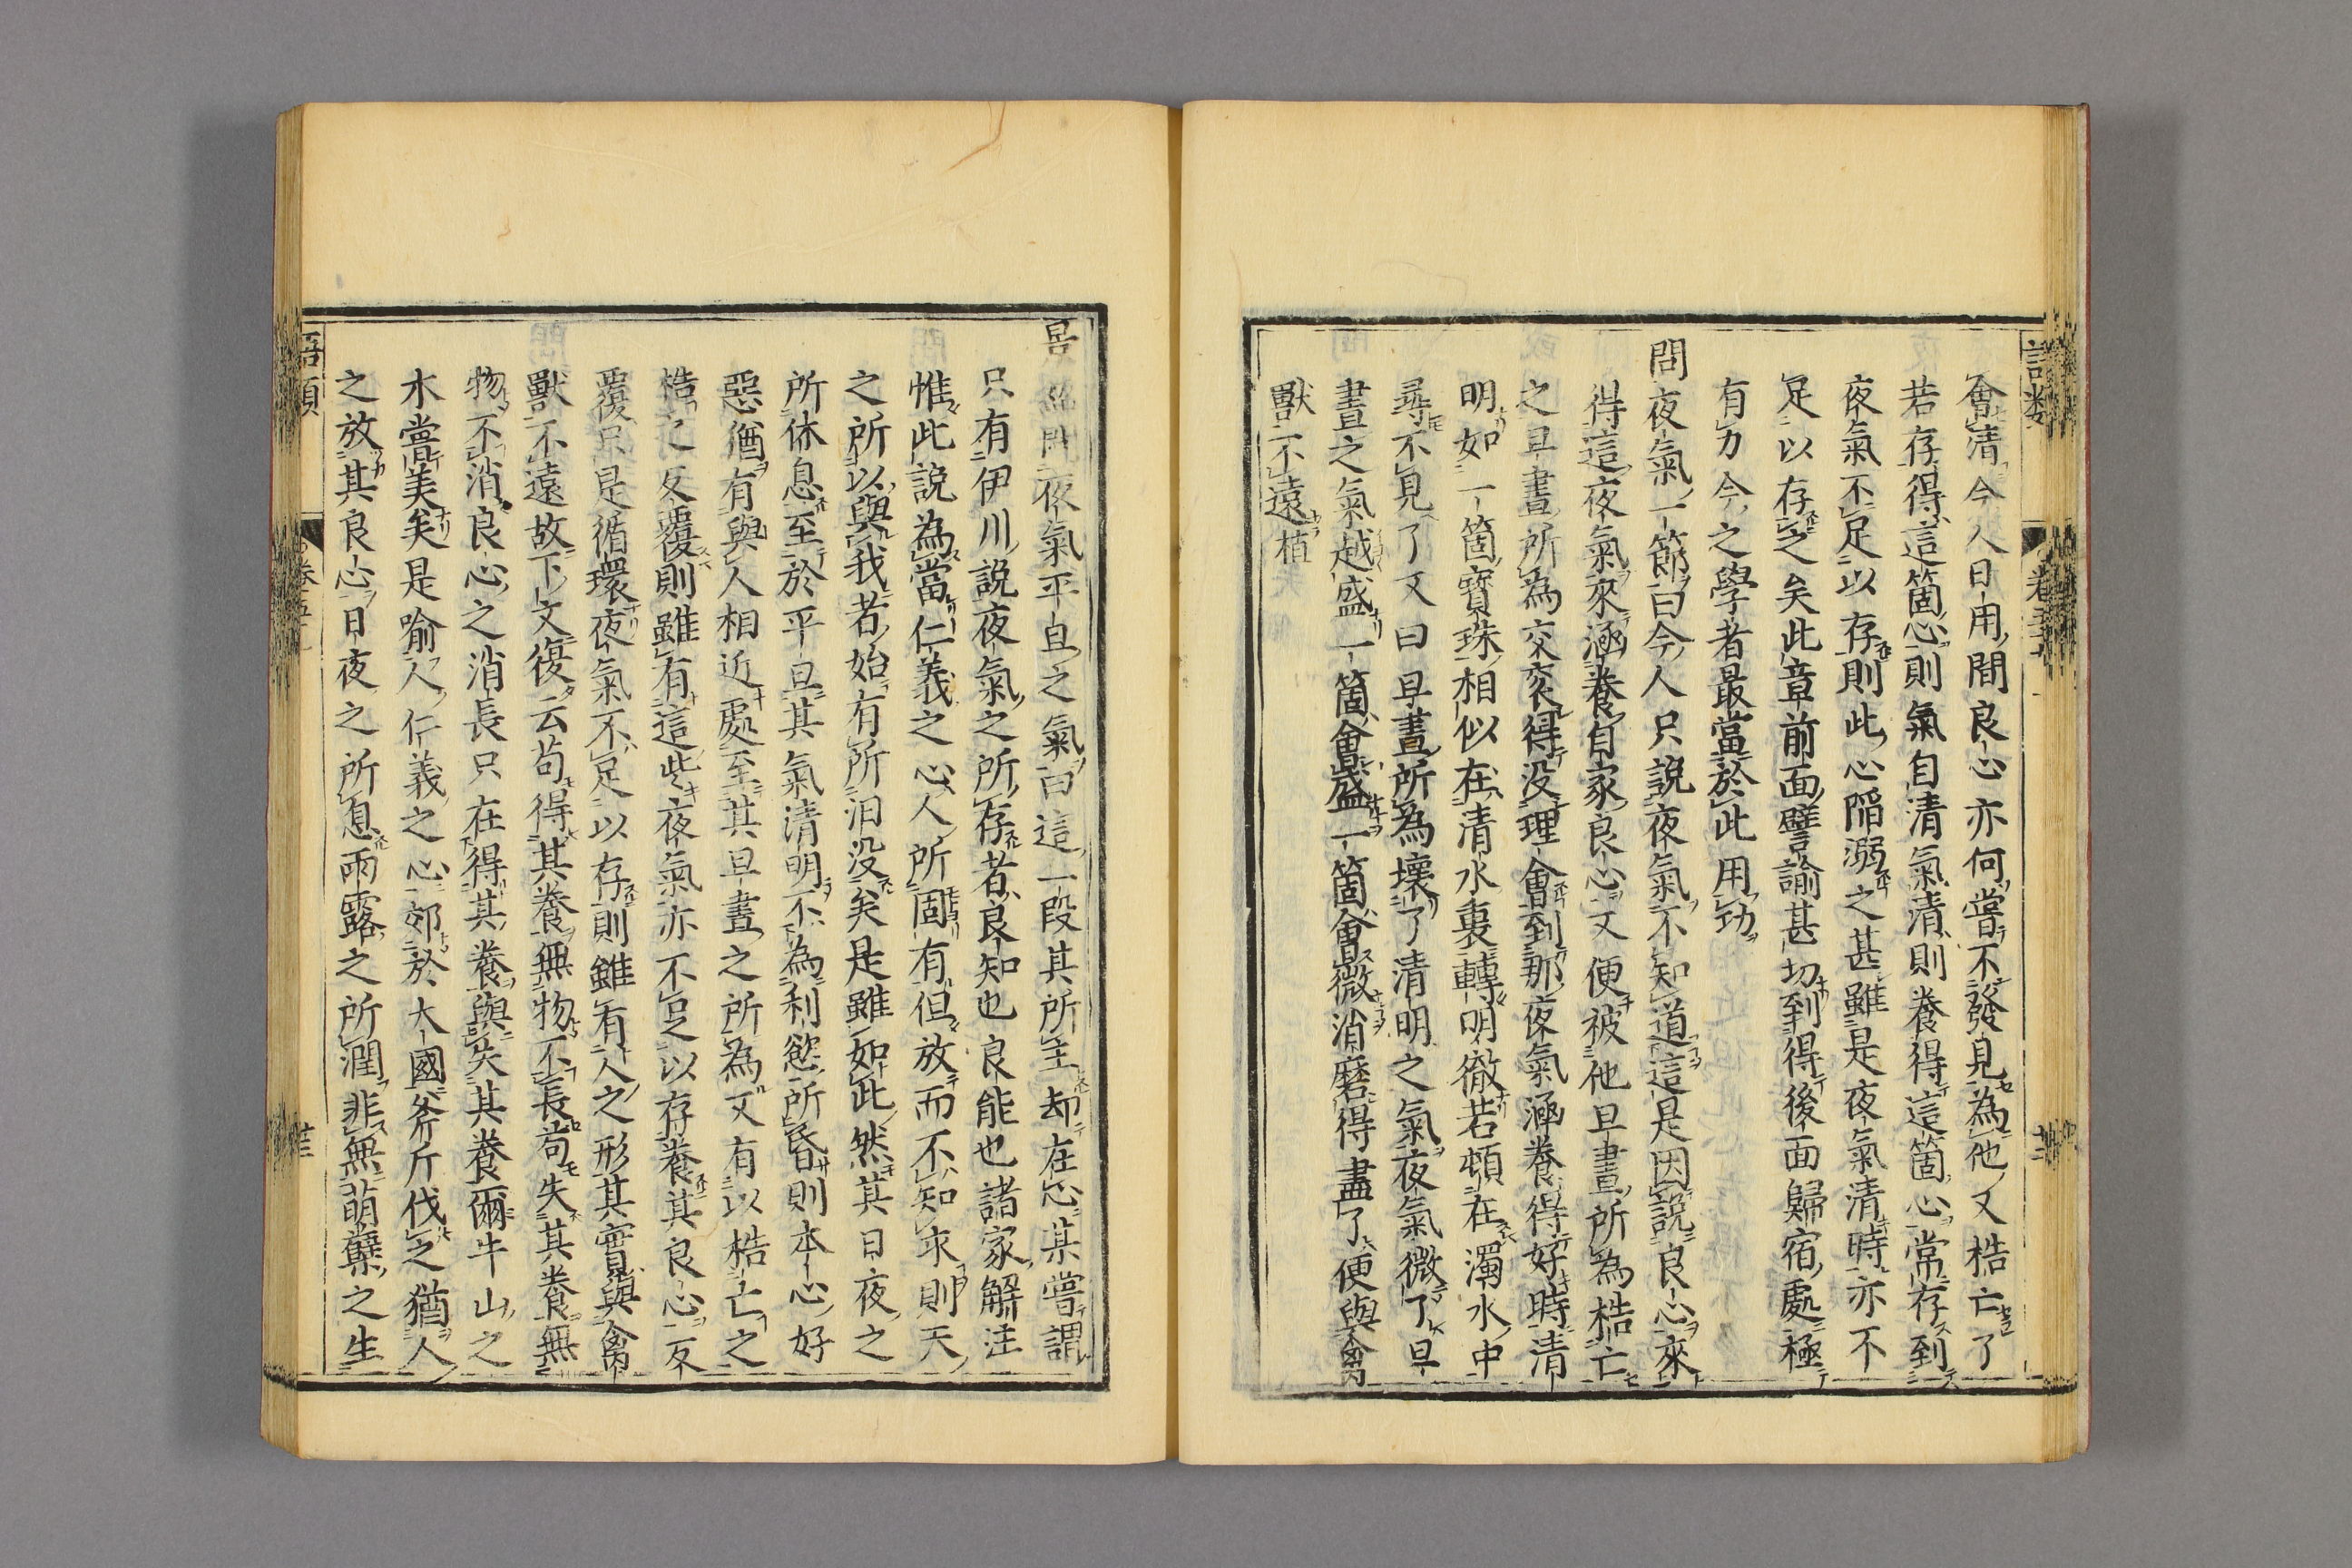 會清今人日用間良心亦何嘗不發見為他又梏亡了
若存得這箇心則氣自清氣清則養得這箇心常存到
夜氣不足以存則此心陷溺之甚雖是夜氣清時亦不
足以存之矣此章前面譬諭甚切到得後面歸宿處極
有力今之學者最當於此用功
問夜氣一節曰今人只說夜氣不知道這是因說良心來
得這夜氣來涵養自家良心又便被他旦晝所為梏亡
之旦晝所為交衮得沒理會到那夜氣涵養得好時清
明如一箇寶珠相似在清水裏轉明徹若頓在濁水中
尋不見了又曰旦晝所為壞了清明之氣夜氣微了旦
晝之氣越盛一箇會盛一箇會微消磨得盡了便與禽
獸不遠植
夜氣平旦之氣曰這一段其所主却在心某嘗謂
只有伊川說夜氣之所存者良知也良能也諸家解注
惟此說為當仁義之心人所固有但放而不知求則天
之所以與我者始有所汨沒矣是雖如此然其日夜之
所休息至於平旦其氣清明不為利慾所昏則本心好
惡猶有與人相近處至其旦晝之所為又有以梏亡之
梏之反覆則雖有這些夜氣亦不足以存養其良心反
覆只是循環夜氣不足以存則雖有人之形其實與禽
獸不遠故下文復云苟得其養無物不長苟失其養無
物不消良心之消長只在得其養與失其養爾牛山之
木嘗美矣是喻人仁義之心郊於大國斧斤伐之猶人
之放其良心日夜之所息雨露之所潤非無萌蘖之生